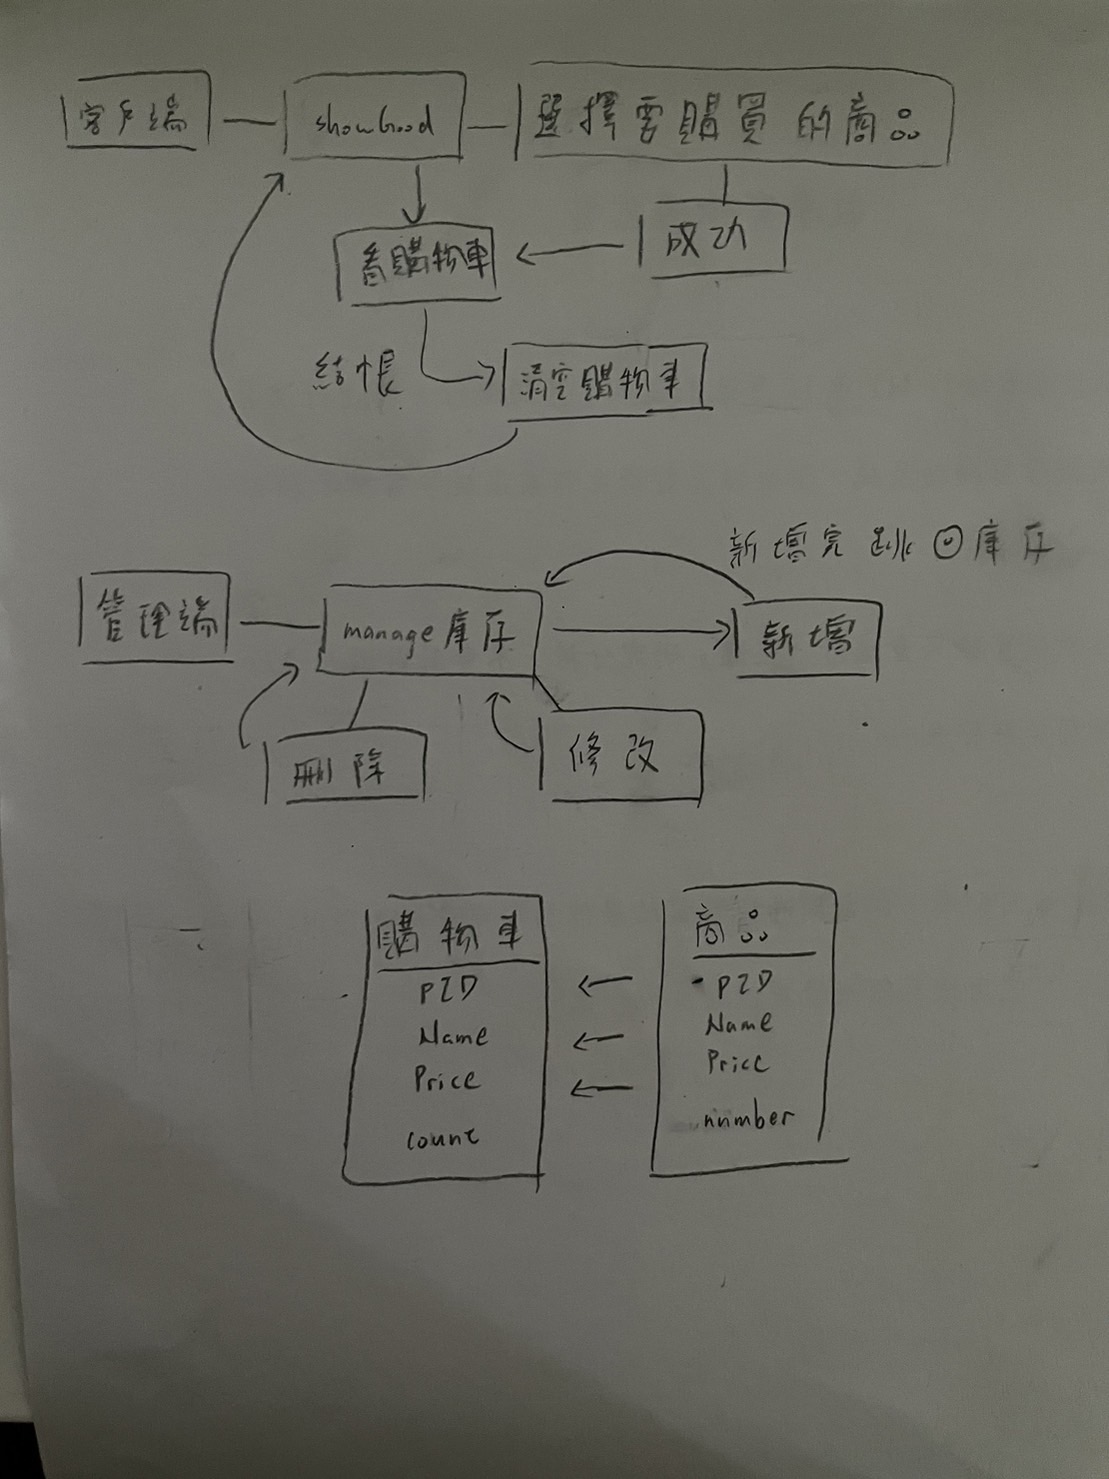 客戶端 showGood 選擇要購買的商品
看購物車 成功
結帳 清空購物車
新增完跳回庫存
管理端 manage庫存 新增
刪除 修改
購物車
PID
Name
Price
count
商品
PID
Name
Price
number